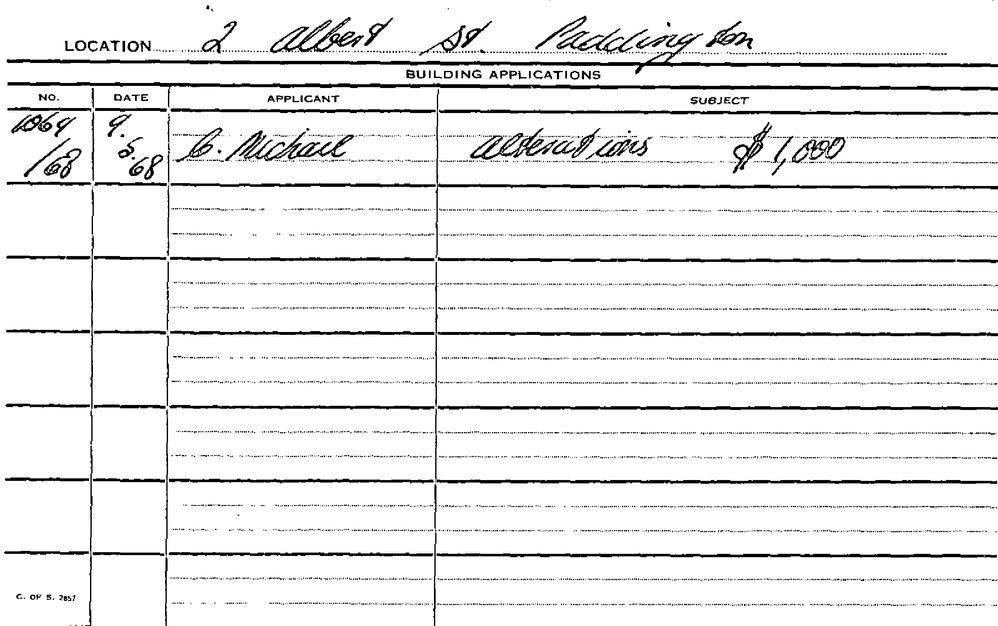 LOCATION 2 Albert St. Paddington
BUILDING APPLICATIONS
NO. DATE APPLICANT SUBJECT
1064 9.
/68 5.68 C. Michael alterations $ 1,000
C. OF S. 2857